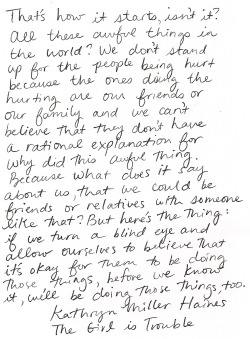 That's how it starts, isn't it?
All these awful things in
the world? We don't stand
up for the people being hurt
because the ones doing the
hurting are our friends or
our family and we can't
believe that they don't have
a rational explanation for
why did this awful thing.
Because what does it say
about us, that we could be
friends or relatives with someone
like that? But here's the thing:
if we turn a blind eye and
allow ourselves to believe that
it's okay for them to be doing
those things, before we know
it, we'll be doing those things, too.
Kathryn Miller Haines
The Girl is Trouble